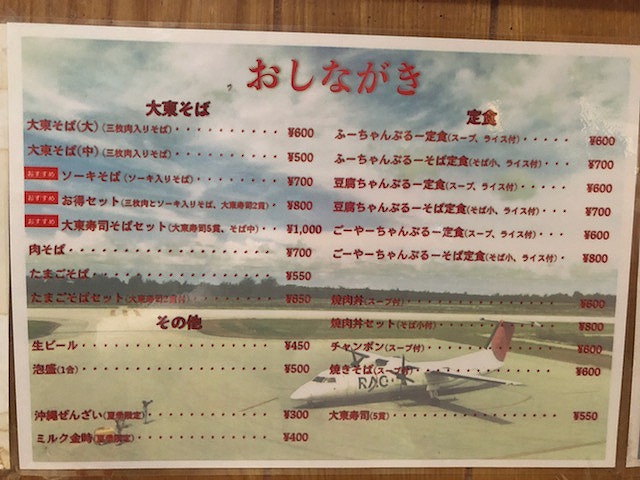 おしながき
大東そば
大東そば(大)(三枚肉入りそば)・・・・・・・・・・¥600
大東そば(中)(三枚肉入りそば)・・・・・・・・・・¥500
おすすめ ソーキそば(ソーキ入りそば)・・・・・・・・¥700
おすすめ お得セット(三枚肉とソーキ入りそば、大東寿司2貫)・・¥800
おすすめ 大東寿司そばセット(大東寿司5貫、そば中)・・・¥1,000
肉そば・・・・・・・・・・・・・・・・・¥700
たまごそば・・・・・・・・・・・・・・・¥550
たまごそばセット(大東寿司2貫付)・・・・・・・・¥650
その他
生ビール・・・・・・・・・・・・・・・・¥450
泡盛(1合)・・・・・・・・・・・・・・・¥500
沖縄ぜんざい(夏季限定)・・・・・・・・・・・¥300
ミルク金時(夏季限定)・・・・・・・・・・・・¥400
定食
ふーちゃんぷるー定食(スープ、ライス付)・・・・・¥600
ふーちゃんぷるーそば定食(そば小、ライス付)・・・¥700
豆腐ちゃんぷるー定食(スープ、ライス付)・・・・・¥600
豆腐ちゃんぷるーそば定食(そば小、ライス付)・・・¥700
ごーやーちゃんぷるー定食(スープ、ライス付)・・・¥600
ごーやーちゃんぷるーそば定食(そば小、ライス付)・¥800
焼肉丼(スープ付)・・・・・・・・・・・・・¥600
焼肉丼セット(そば小付)・・・・・・・・・・¥800
チャンポン(スープ付)・・・・・・・・・・・¥600
焼きそば(スープ付)・・・・・・・・・・・・¥600
大東寿司(5貫)・・・・・・・・・・・・・・¥550
RAC